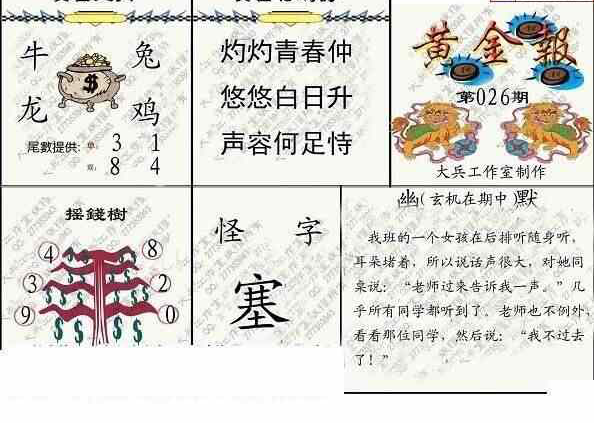 牛 兔
龙 鸡
$
尾數提供: 单: 3 1
双: 8 4
灼灼青春仲
悠悠白日升
声容何足恃
黄金報
第026期
大兵工作室制作
摇錢樹
4 8
3 2
9 0
怪 字
塞
幽(玄机在期中)默
我班的一个女孩在后排听随身听,
耳朵堵着,所以说话声很大,对她同
桌说:“老师过来告诉我一声。”几
乎所有同学都听到了。老师也不例外,
看看那位同学,然后说:“我不过去
了!”